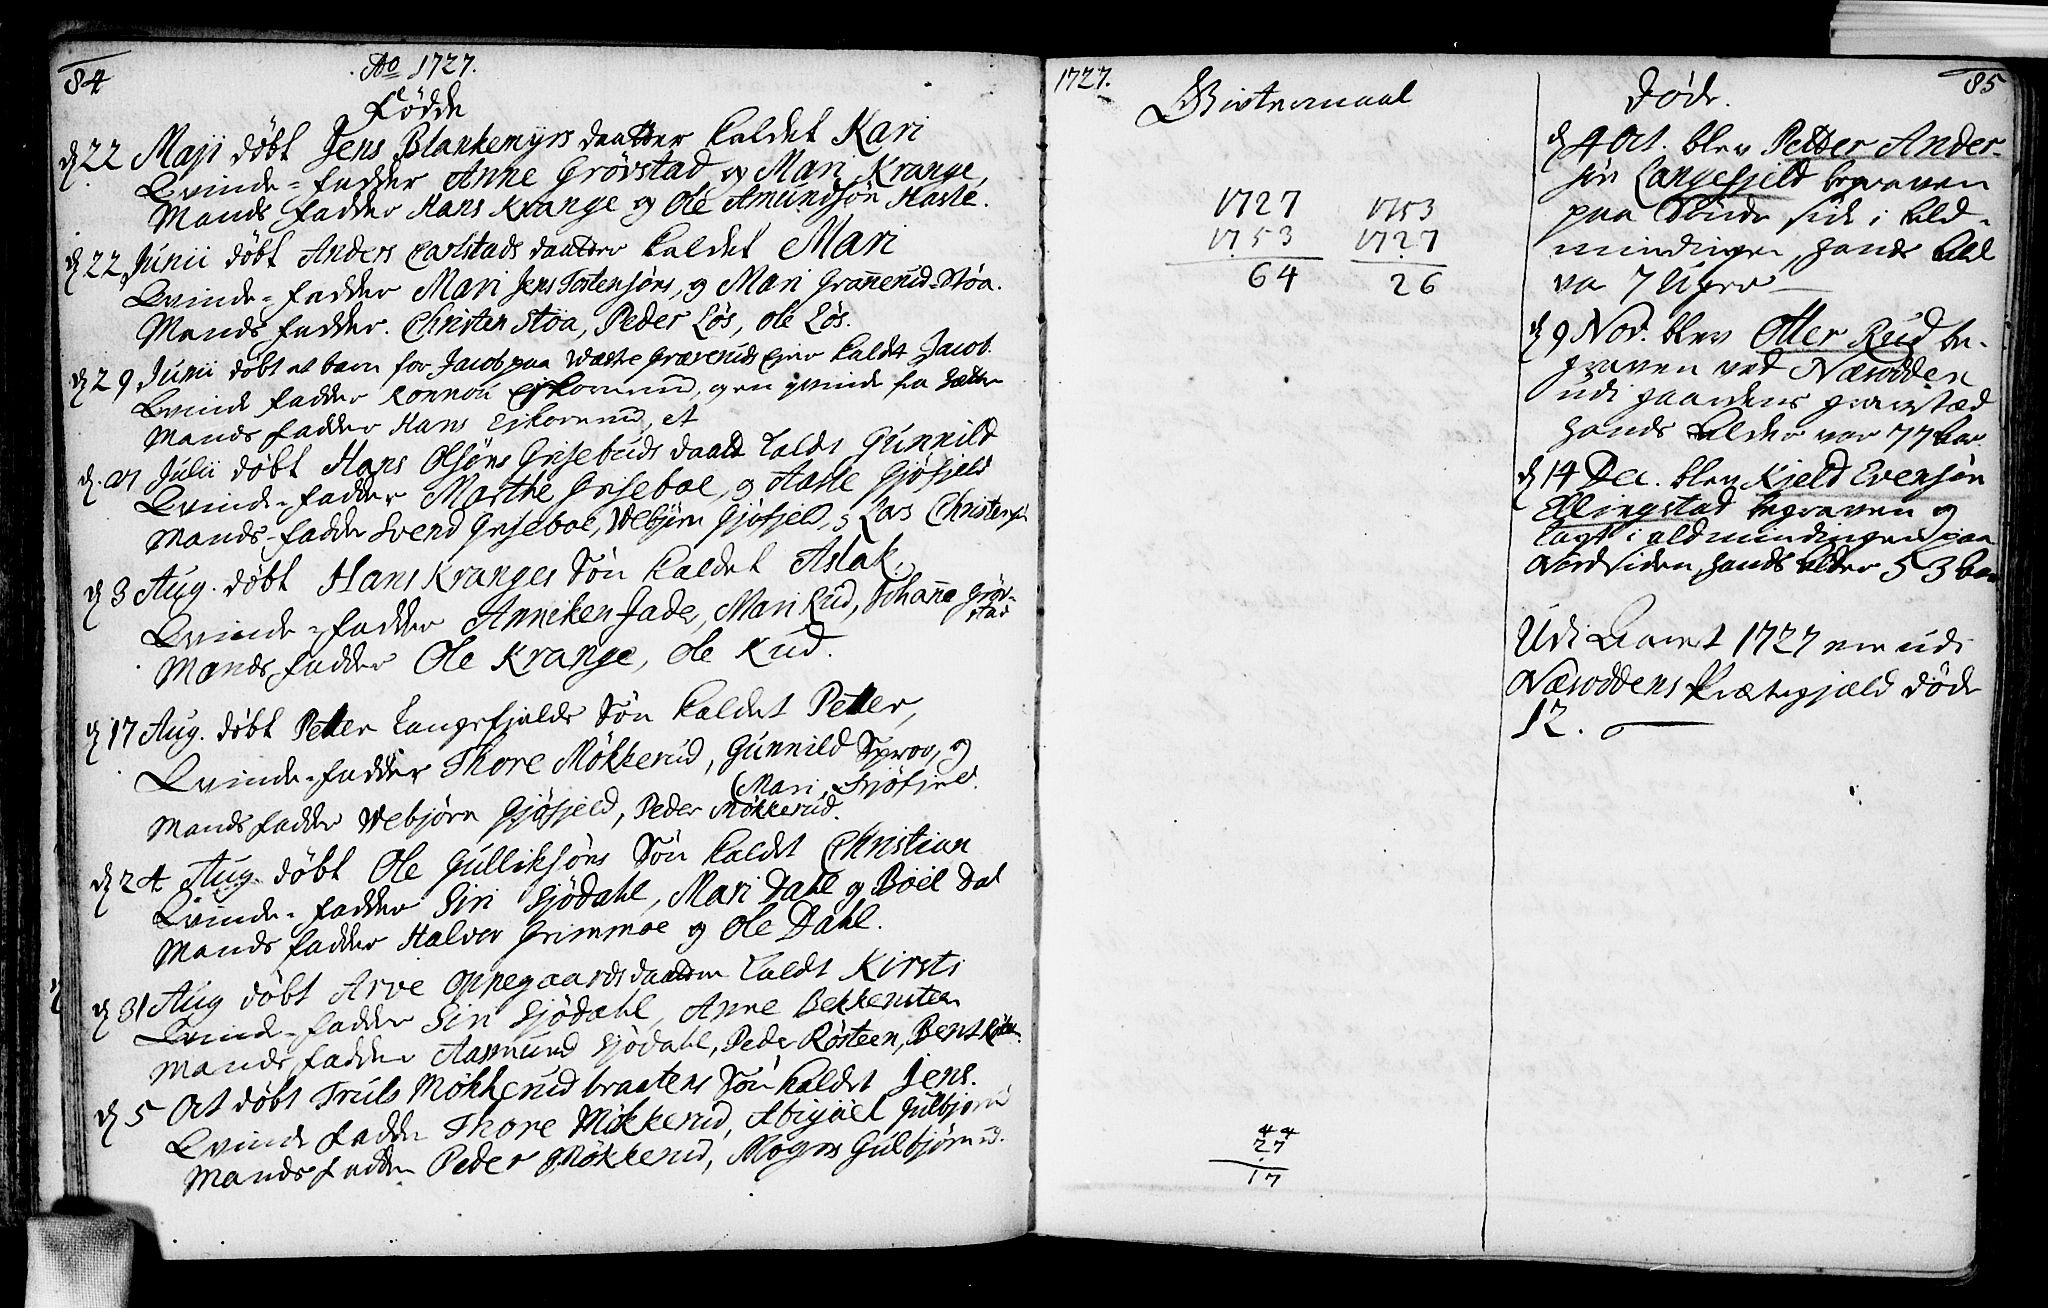 84
Ao 1727.
Födde
d 22 Maji döbt Jens Blankemyrs daatter kaldet Kari
Qvinde-fadder Anne Grövstad og Mari Krange,
Mands fadder Hans Krange og Ole Amundsön Haslé.
d 22 Junii döbt Anders Carlstads daatter kaldet Mari
Qvinde-fadder Mari Jens Tostensöns, og Mari Granerud-Støa.
Mands fadder. Christen Stöa, Peder Lös, Ole Lös.
d 29 Junii döbt et barn for Jacob paa Wæstre Græverud kaldet Jacob.
Qvinde fadder Ronnou Ejkornrud, og en qvinde fra
Mands fadder Hans Ejkornrud, et
d. Julii döbt Hans Olsöns Grisebuds daatter kaldt Gunnild
Qvinde-fadder Marthe Griseboe, og Aaste Gjöfjeld
Mands-fadder Svend Griseboe, Webjörn Gjöfjeld, Lars Christensön
d 3 Aug. döbt Hans Kranges Sön kaldet Aslak.
Qvinde-fadder Anniken Jade, Mari Rud, Johanne Gröv-
stad
Mands fadder Ole Krange, Ole Rud.
d 17 Aug. döbt Petter Langefjelds Sön kaldet Petter,
Qvinde-fadder Thore Mökkerud, Gunnild Sprov, og
(Mari Gjöfjeld.
Mands fadder Webjörn Gjöfjeld, Peder Mökkerud.
d 24 Aug. döbt Ole Gulliksöns Sön kaldet Christian
Qvinde-fadder Siri Sjödahl, Mari Dahl og Boel Dal
Mands fadder Halver Grimmoe og Ole Dahl.
d 31 Aug döbt Arve Oppegaards daatter kaldt Kirsti
Qvinde-fadder Siri Sjödahl, Anne Bekkensteen
Mands fadder Aasmund Sjödahl, Peder Rösteen, Bent
d 5 Oct döbt Truls Mökkerudbraatens Sön kaldet Jens.
Qvinde fadder Thore Mökkerud, Abigäel Gulbjörnrud
Mands fadder Peder Mökkerud, Mogns Gulbjörnrud.
1727.
Givtermaal
1727 1753
1753 1727
64 26
44
27
17
85
Döde.
d 4 Oct. blev Petter Ander-
sön Langefjeld begraven
paa Söndre side i Ald-
mindingen, hands Ald
var 7 Uger
d 9 Nov. blev Otter Rud be-
graven ved Næsodden
udi gaardens gravstæd
hands Alder var 77 aar
d 14 Dec. blev Kjeld Evensön
Ellingstad begraven og
lagt i aldmindingen paa
Nordsiden, hands alder 53 aar
Udi Aaret 1727 ere udi
Næsoddens Prætegjæld döde
12.